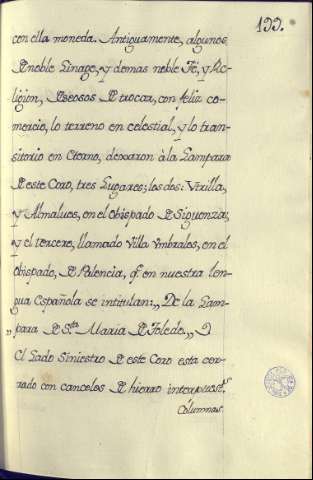 199.
con ella moneda. Antiguamente, algunos
de noble Linage, y demas noble Fé, y Re-
ligion, deseosos de trocar, con feliz co-
mercio, lo terreno en celestial, y lo tran-
sitorio en Eterno, dexaron à la Lampara
de este Coro, tres Lugares; los dos: Utrilla,
y Almalues, en el Obispado de Siguenza;
y el tercero, llamado Villa Umbrales, en el
Obispado, de Palencia, q̃ en nuestra len-
gua Española se intitulan: „ De la Lam-
„ para de S.ta Maria de Toledo. „ 
El Lado Siniestro de este Coro esta cer-
rado con canceles de hierro interpuest.s
Columnas.